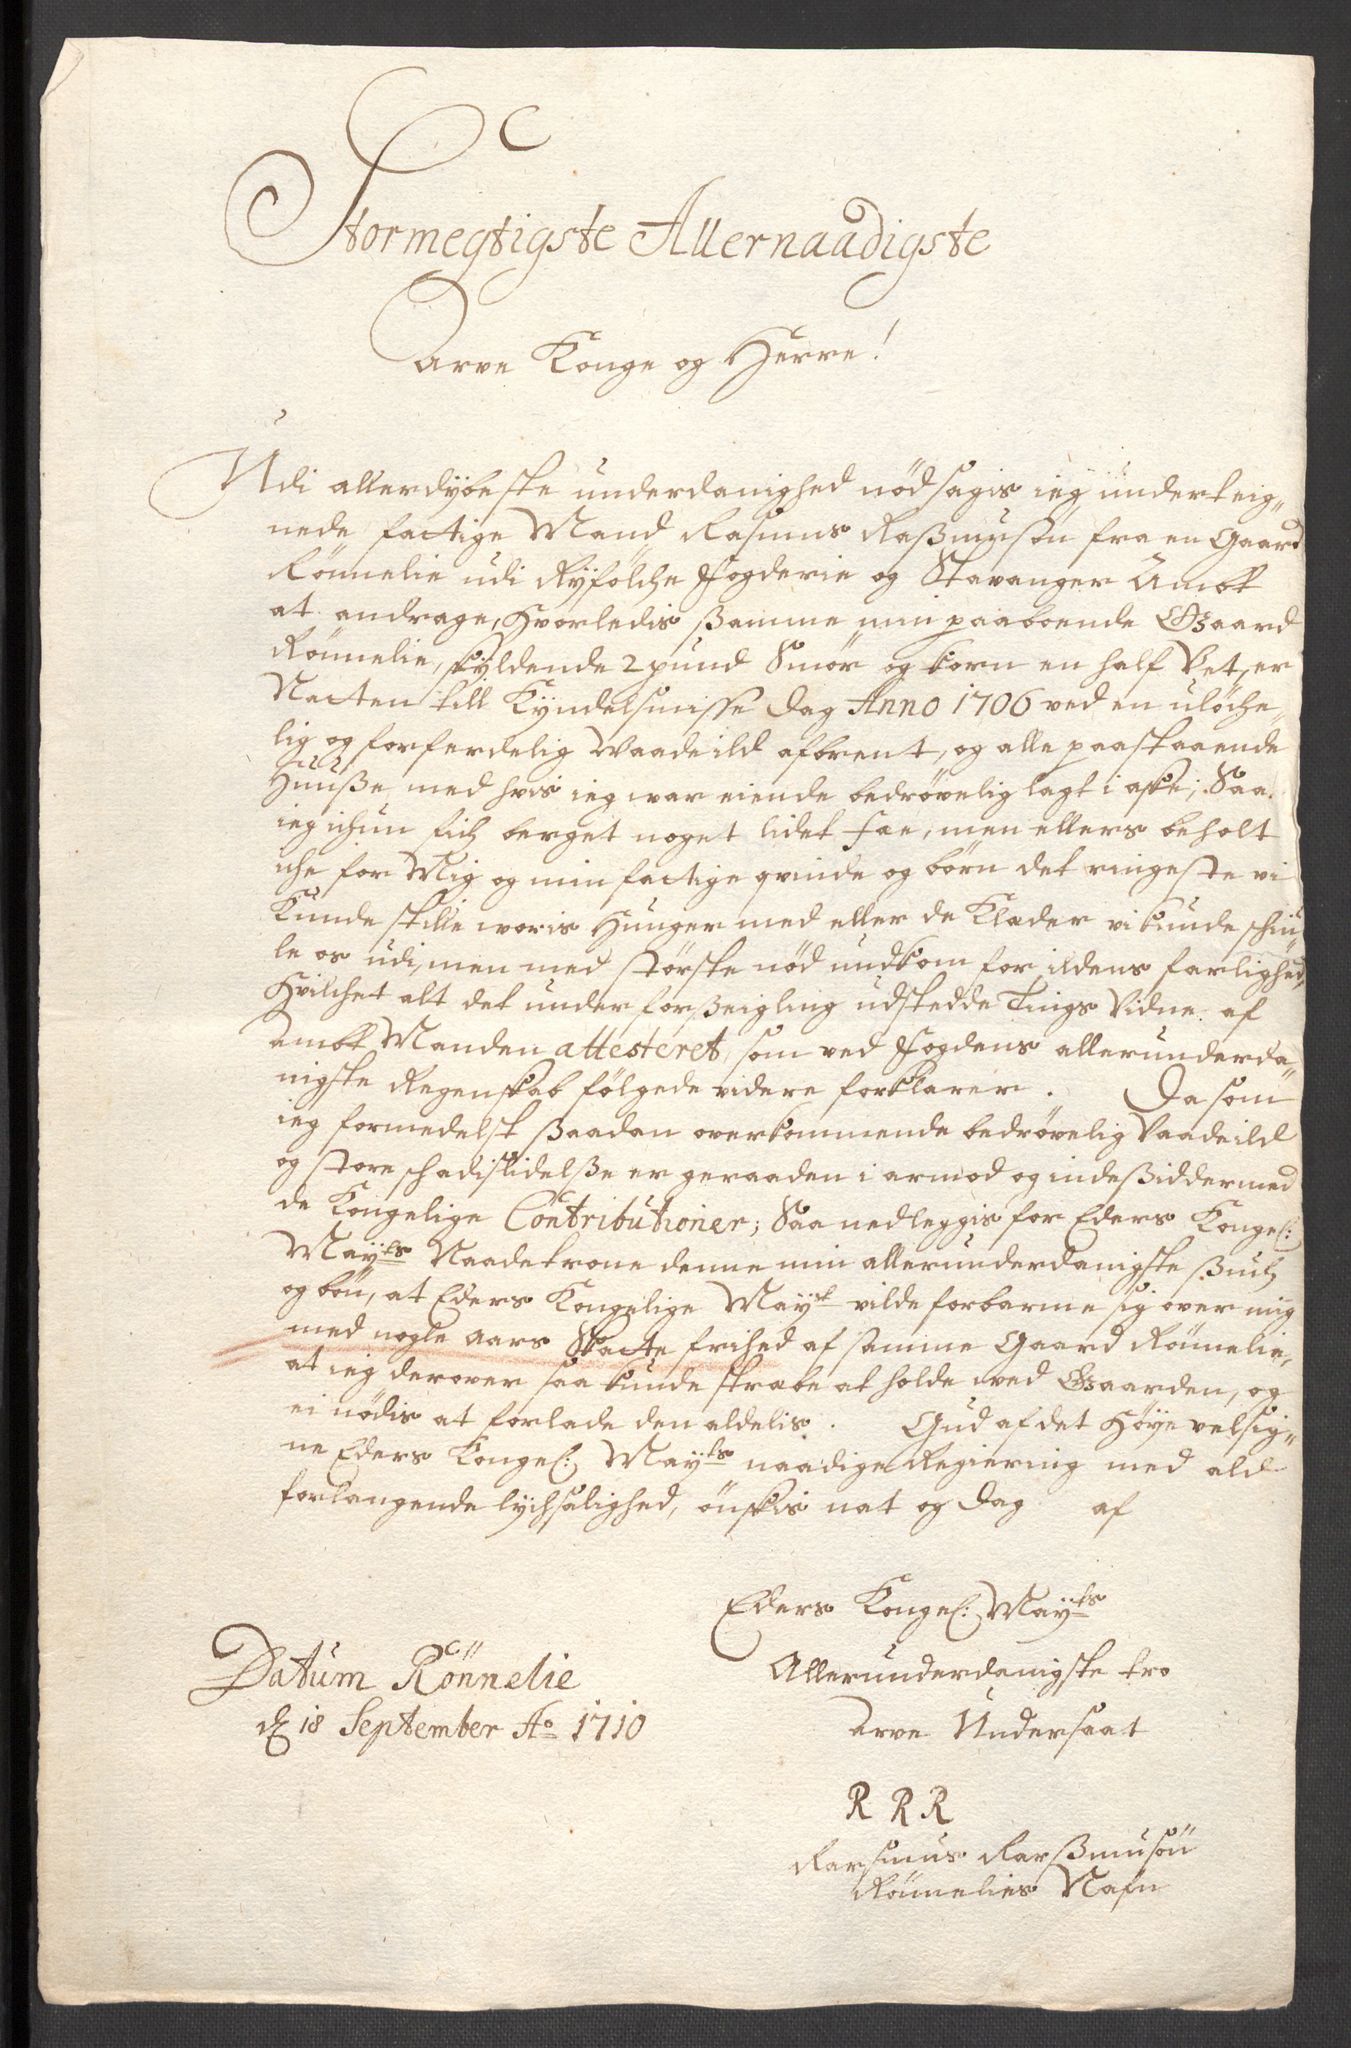 Stormegtigste Allernaadigste
Arve Konge og Herre!
Udi allerdÿbeste underdanighed nödsagis ieg underteig„
nede factige Mand Rasmus Raßmusøn fra en Gaard
Rönnelie udi Rÿfölche Fogderie og Stavanger Ambt
at andrage, hvorledis ßamme min paaboende Gaard
Rönnelie, skÿldende 2 pund Smör og korn en half Vet, er
Nacten till Kÿndelsmisse Dag Anno 1706 ved en ulöche„
lig og forferdelig Waadeild afbrent, og alle paastaaende
Huuße med hvis ieg war eiende bedrøvelig lagt i aske; Saa
ieg ichun fich berget noget lidet fæe, men ellers beholt
iche for Mig og min factige qvinde og börn det ringeste vi
Kunde stille woris Hunger med eller de Klæder vi kunde schiu„
le os udi, men med største nöd undkom for ildens farlighed,
Hvilchet alt det under forßeigling udstedde Tings Vidne af
Ambt Manden attesteret, som ved Fogdens allerunderda„
nigste Regenskab fölgede videre forklarer. Da som
ieg formedelst ßaadan overkommende bedrøvelig Vaadeild
og store schadislidelße er geraaden i armod og indeßidder med
de Kongelige Contributioner; Saa nedleggis for Eders Kongel:
Maÿts Naade trone denne min allerunderdanigste ßuch
og bön, at Eders Kongelige Maÿt vilde forbarme sig over mig
med nogle aars Skatte frihed af samme Gaard Rönnelie,
at ieg derover saa kunde stræbe at holde wed Gaarden, og
ei nödis at forlade den aldelis. Gud af det Høÿe velsig„
ne Eders Kongel: Maÿts naadige Regiering med ald
forlangende lÿchsalighed, önskis nat og Dag af
Eders Kongel: Maÿts
Allerunderdanigste tro
arve Undersaat
Datum Rönnelie
d 18 September Ao 1710
R R R
Rarsmus Rarßmusön
Rönnelies Nafn